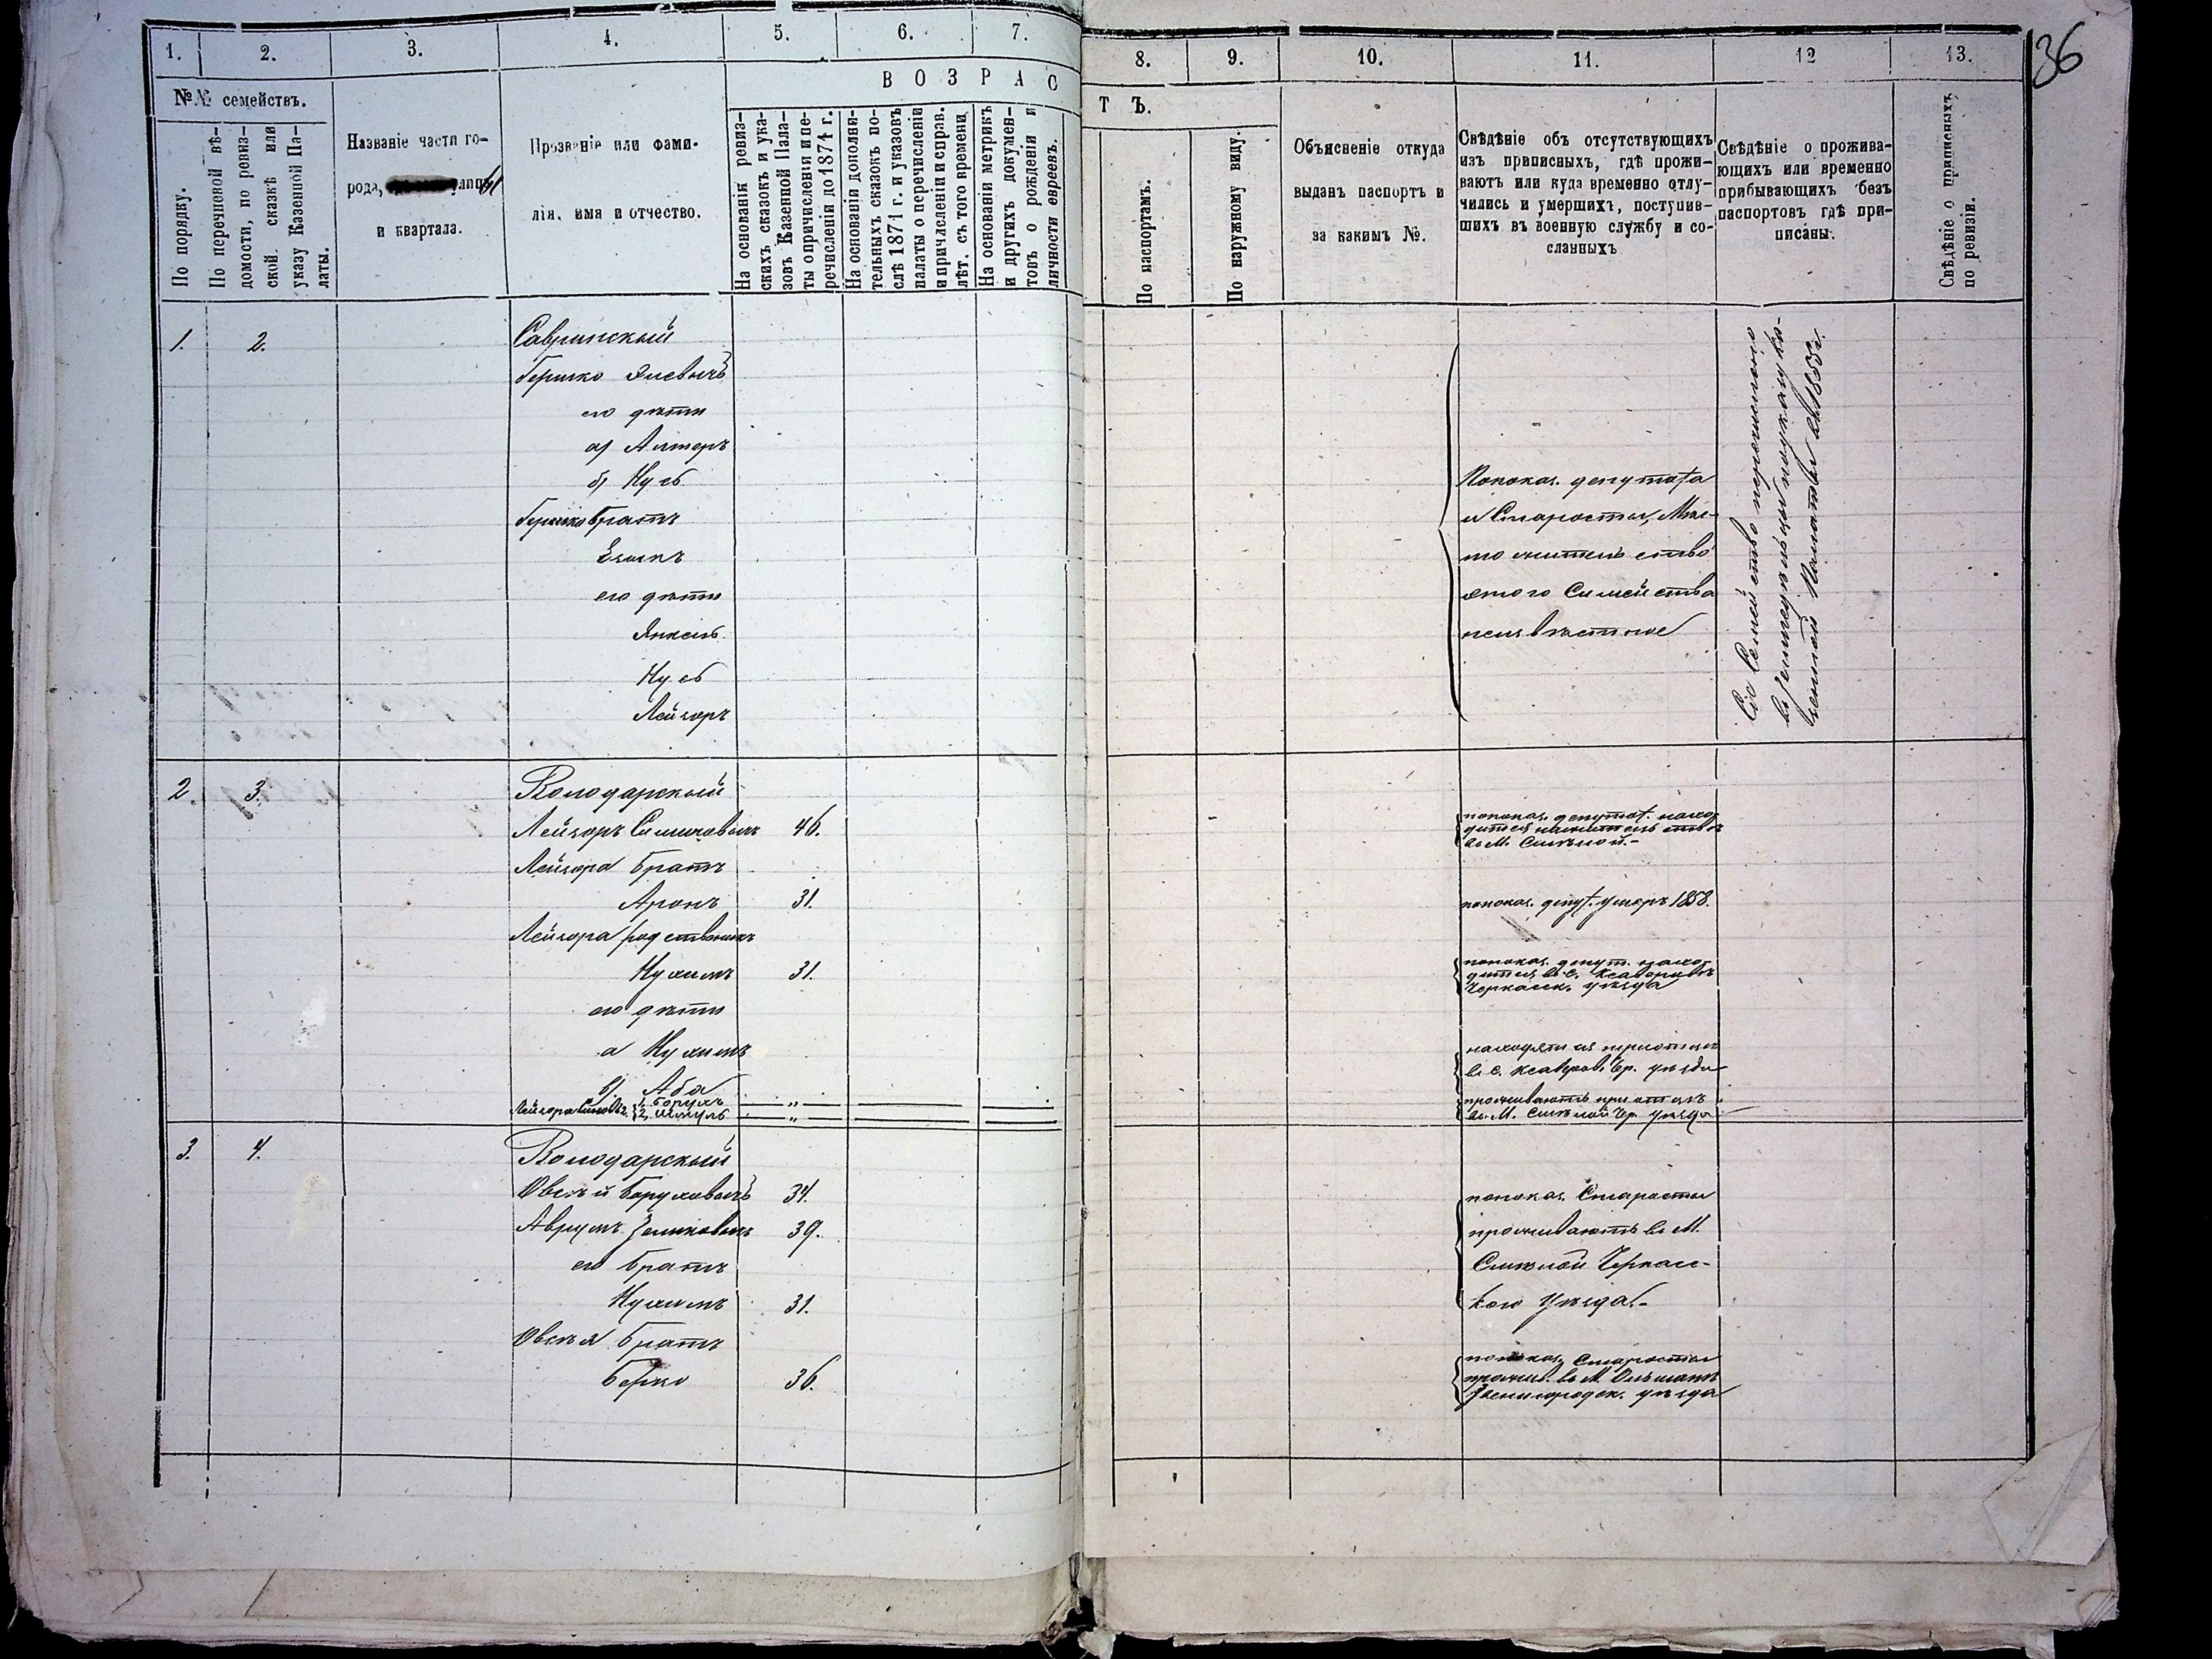 36
1. 2. 3. 4. 5. 6. 7. 8. 9. 10. 11. 12 13.
№№ семействъ.
По порядку.
По перечневой вѣ-
домости, по ревиз-
ской сказкѣ или
указу Казенной Па-
латы.
Названіе части го-
рода, улицы
и квартала.
Прозваніе или фами-
лія, имя и отчество.
ВОЗРАСТЪ.
На основаніи ревиз-
скихъ сказокъ и ука-
зовъ Казенной Пала-
ты о причисленіи и пе-
речисленіи до 1871 г.
На основаніи дополни-
тельныхъ сказокъ по-
слѣ 1871 г. и указовъ
палаты о перечисленіи
и причисленіи и справ.
лѣт. съ того времени
На основаніи метрикъ
и другихъ докумен-
товъ о рожденіи и
личности евреевъ.
По паспортамъ.
По наружному виду.
Объясненіе откуда
выданъ паспортъ и
за какимъ №.
Свѣдѣніе объ отсутствующихъ
изъ приписныхъ, гдѣ прожи-
ваютъ или куда временно отлу-
чились и умершихъ, поступив-
шихъ въ военную службу и со-
сланныхъ
Свѣдѣніе о прожива-
ющихъ или временно
прибывающихъ безъ
паспортовъ гдѣ при-
писаны.
Свѣдѣніе о приписныхъ
по ревизіи.
1. 2. Савранскый
Гершко
его дѣти
а) Алтеръ
б) Нусъ
Гершко братъ
его дѣти
Янкель
Нусъ
Лейзоръ
Попоказ. депутата
и Старосты, Мѣс-
то жительство
этого Семейства
неизвѣстное
Сіе Семейство перечислено
въ
зенной Палаты въ 1855 г.
2. 3. Володарскый
Лейзоръ 46.
попоказ. депутат. нахо-
дится на жительствѣ
въ М. Смѣлой.-
Лейзора братъ
Аронъ 31.
попоказ. депут. умеръ 1858.
Лейзора родственникъ
Нухимъ 31.
попоказ. депут. нахо-
дится въ с. Ксаверовѣ
Черкасск. уѣзда
его дѣти
а Нухимъ
находятся при отцѣ
въ с. Ксаверов. Чер. уѣзда
в). Аба
Лейзора Сыновья. 1, Борухъ „
2, Шмуль „
проживаютъ при отцѣ
въ М. Смѣлой Чер. уѣзда
3. 4. Володарскый
Овсѣй Боруховычъ 34.
Аврумъ Зельмановычъ 39.
его братъ
Нухимъ 31.
попоказ. Старосты
проживаютъ въ М.
Смѣлой Черкасс-
кого Уѣзда.-
Овсѣя братъ
Берко 36.
попоказ. Старосты
прожив. въ М. Ольшанѣ
Звенигородск. уѣзда